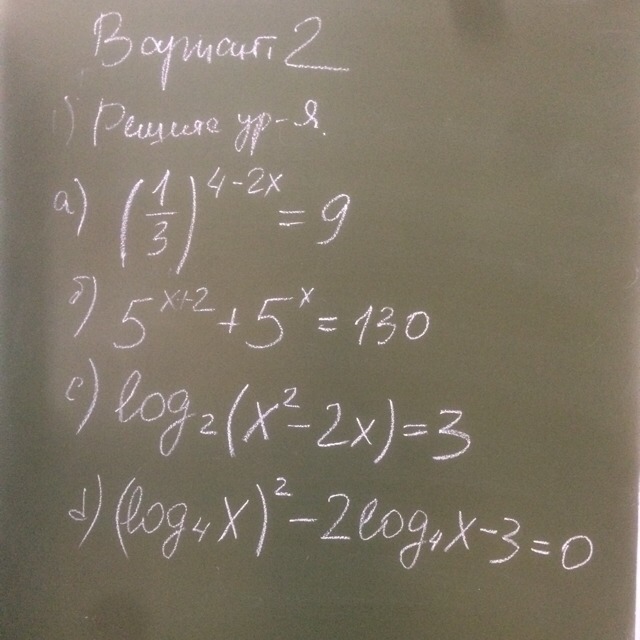 Вариант 2
1) Решите ур-я
а) (1/3)^(4-2x) = 9
б) 5^(x+2) + 5^x = 130
c) log₂(x² - 2x) = 3
d) (log₄x)² - 2log₄x - 3 = 0